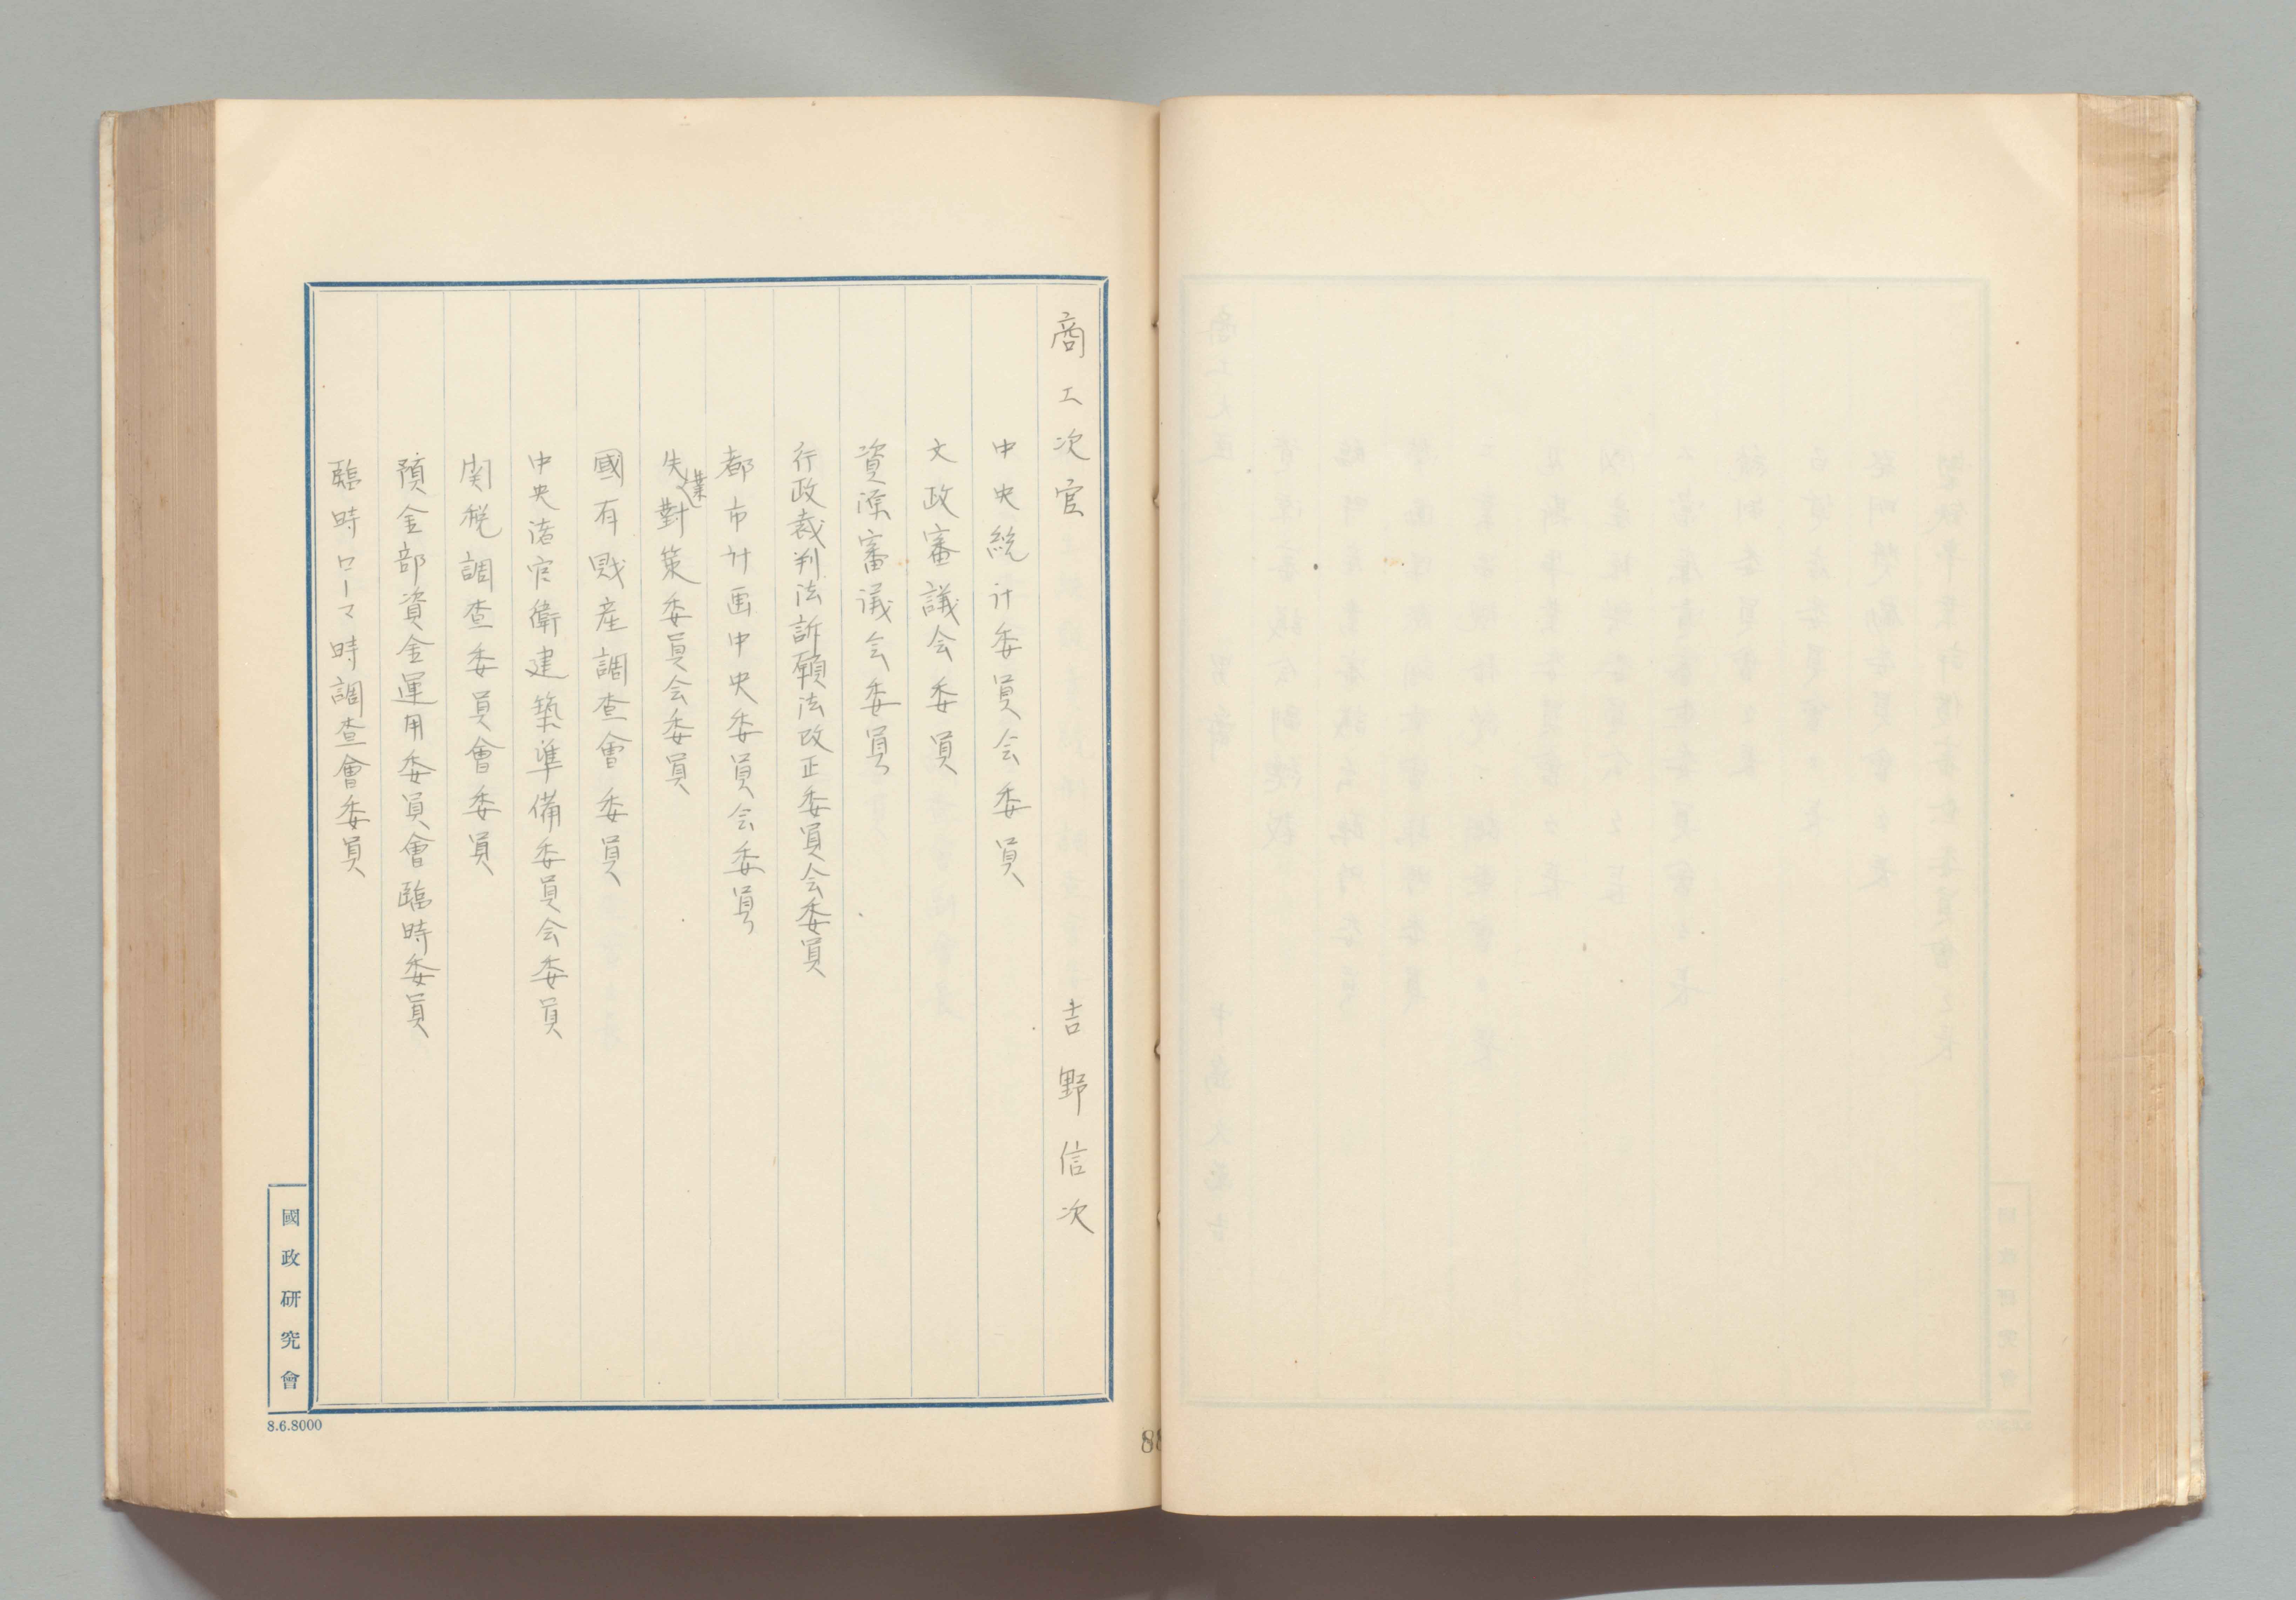 商工次官　吉野信次
中央統計委員会委員
文政審議会委員
資源審議会委員
行政裁判法訴願法改正委員会委員
都市計画中央委員会委員
失業對策委員会委員
國有財産調査會委員
中央諸官衛建築準備委員会委員
関税調査委員會委員
預金部資金運用委員會臨時委員
臨時ローマ時調査會委員
國政研究會
8.6.8000